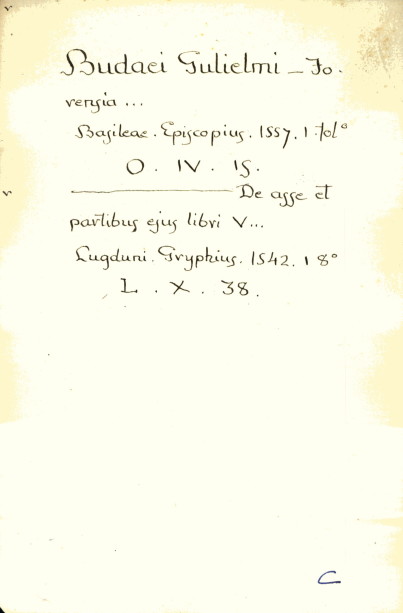 Budaei Gulielmi – Fo.
rensia ...
Basileae. Episcopius. 1557. 1 folº
O. IV. 15.
——— De asse et
partibus ejus libri V...
Lugduni. Gryphius. 1542. 1 8º
L. X. 38.
C